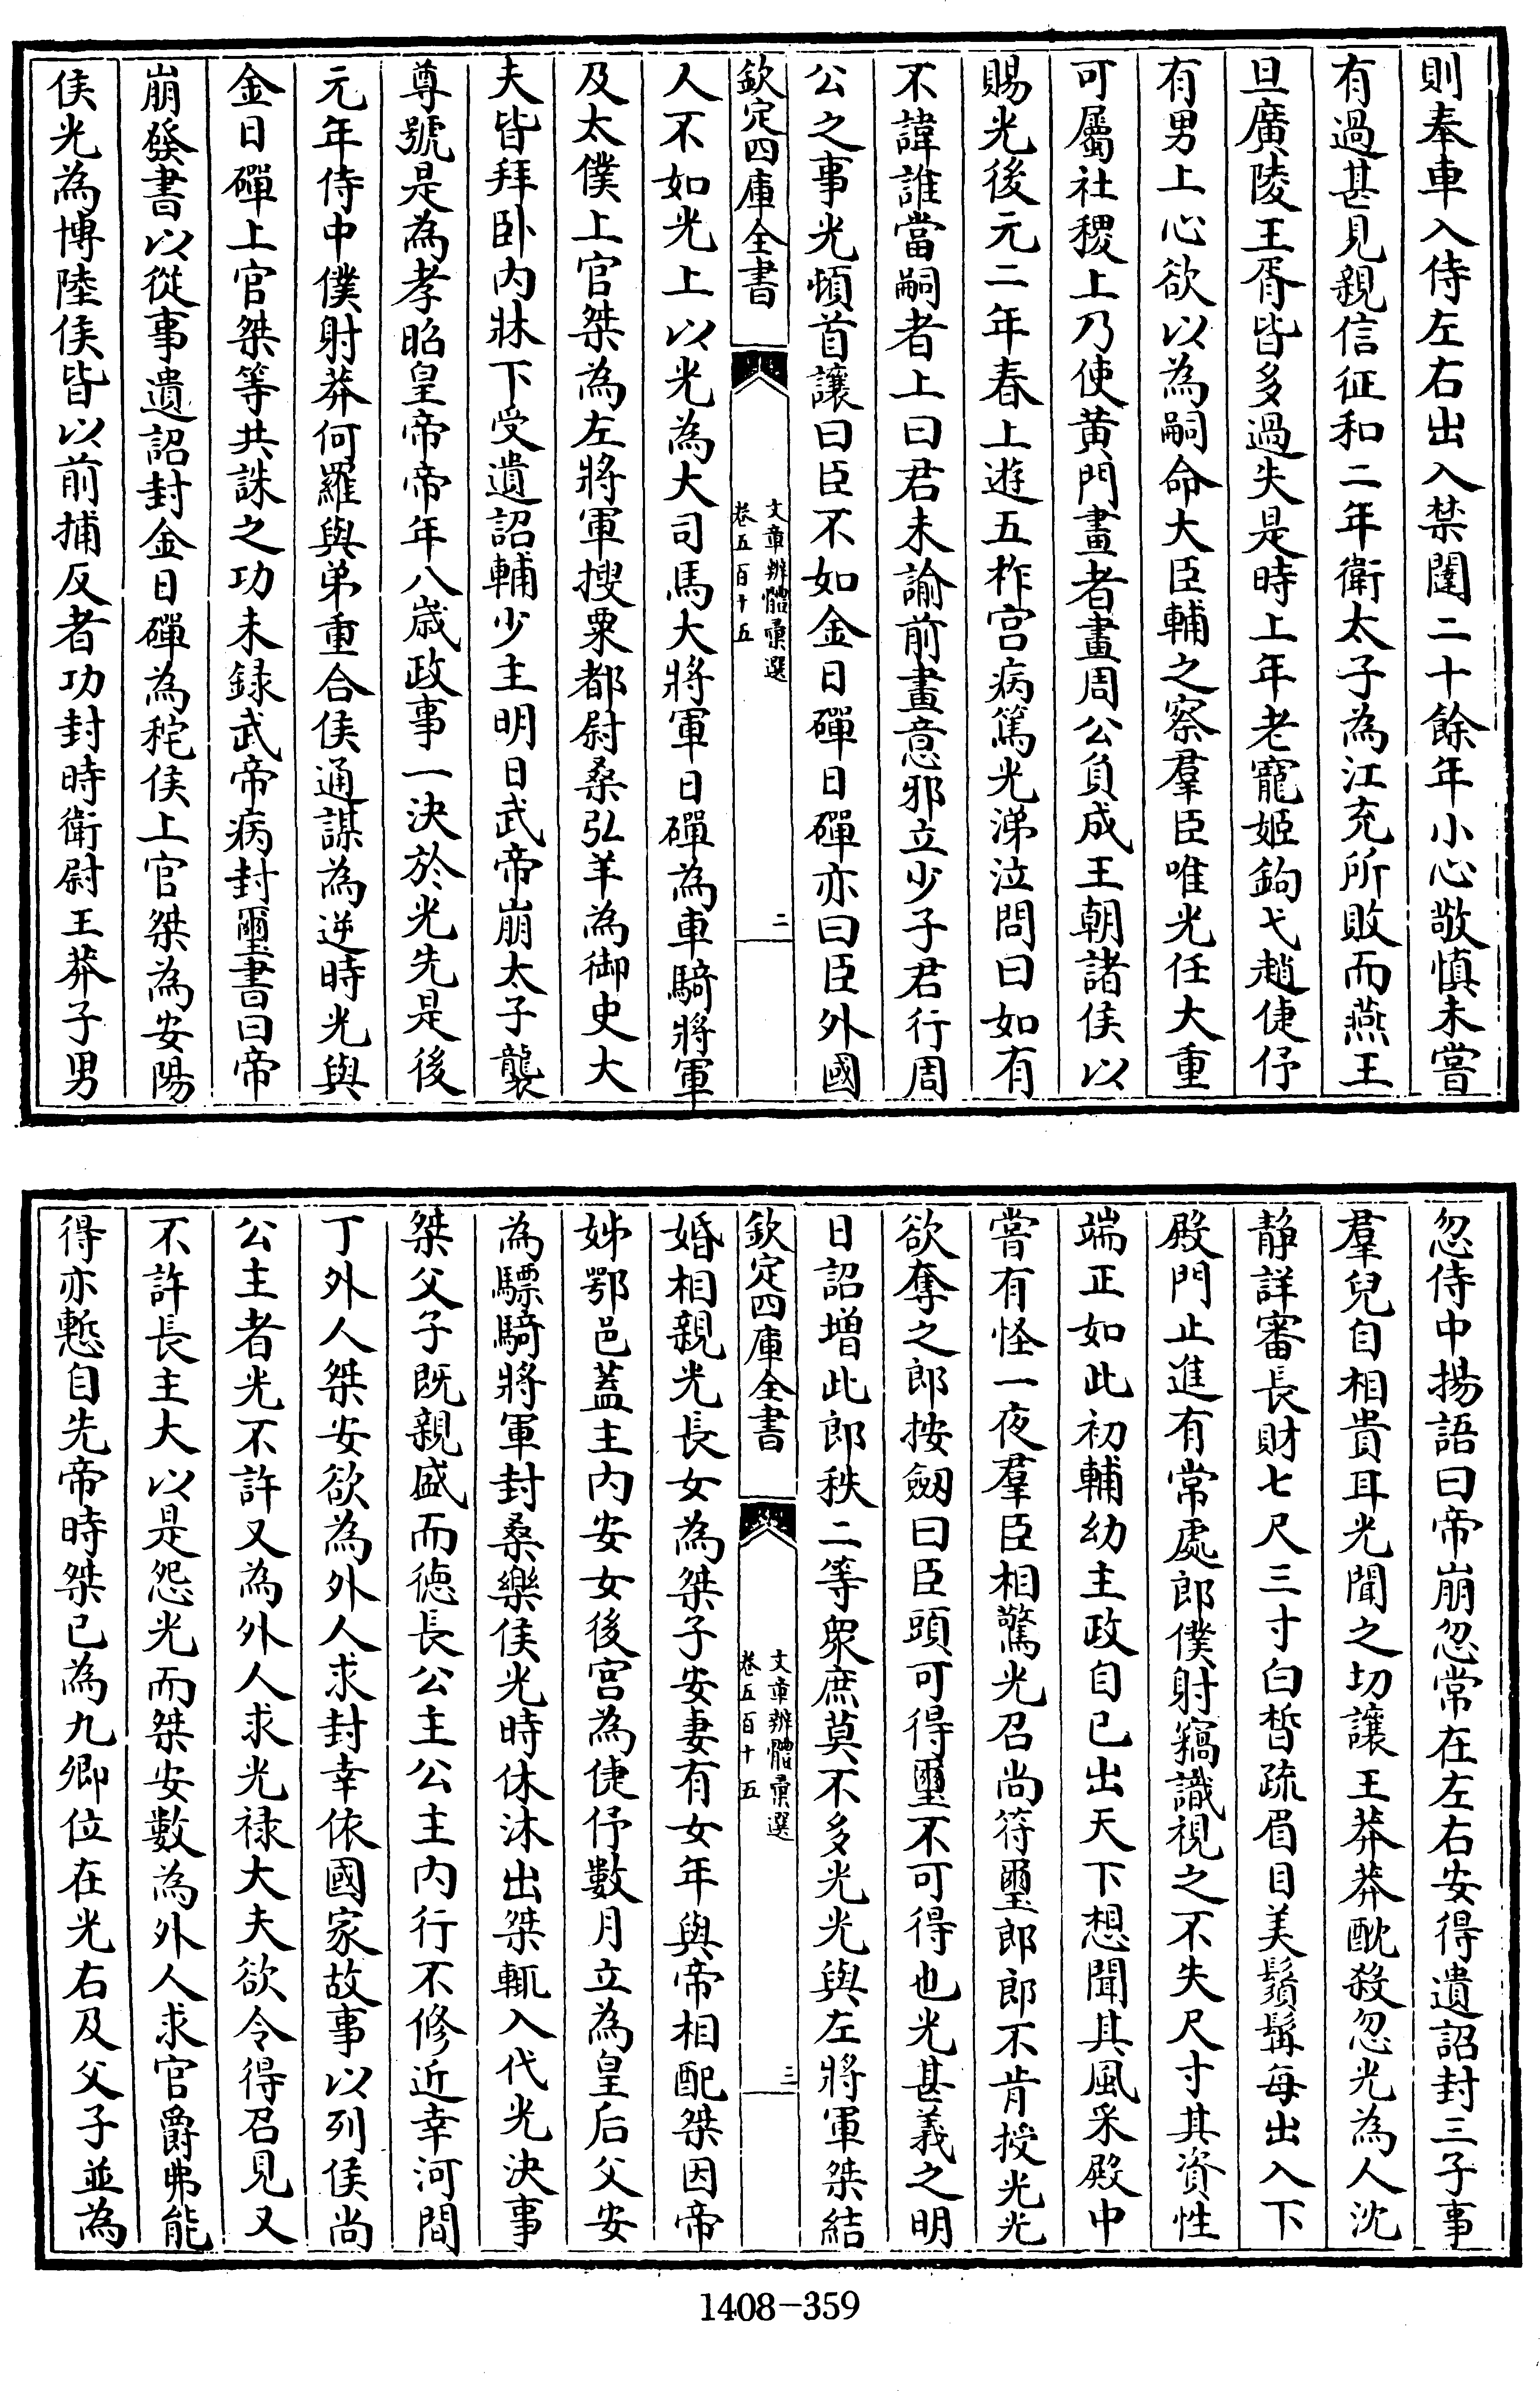 則奉車入侍左右出入禁闥二十餘年小心敬慎未嘗
有過甚見親信征和二年衛太子為江充所敗而燕王
旦廣陵王胥皆多過失是時上年老寵姬鉤弋趙倢伃
有男上心欲以為嗣命大臣輔之察羣臣唯光任大重
可屬社稷上乃使黃門畫者畫周公負成王朝諸侯以
賜光後元二年春上遊五柞宫病篤光涕泣問曰如有
不諱誰當嗣者上曰君未諭前畫意邪立少子君行周
公之事光頓首讓曰臣不如金日磾日磾亦曰臣外國
欽定四庫全書
文章辨體彚選
卷五百十五
二
人不如光上以光為大司馬大將軍日磾為車騎將軍
及太僕上官桀為左將軍搜粟都尉桑弘羊為御史大
夫皆拜卧内牀下受遺詔輔少主明日武帝崩太子襲
尊號是為孝昭皇帝帝年八歲政事一決於光先是後
元年侍中僕射莽何羅與弟重合侯通謀為逆時光與
金日磾上官桀等共誅之功未録武帝病封璽書曰帝
崩發書以從事遺詔封金日磾為秺侯上官桀為安陽
侯光為博陸侯皆以前捕反者功封時衛尉王莽子男
忽侍中揚語曰帝崩忽常在左右安得遺詔封三子事
羣兒自相貴耳光聞之切讓王莽莽酖殺忽光為人沈
静詳審長財七尺三寸白晳疏眉目美鬚髯每出入下
殿門止進有常處郎僕射竊識視之不失尺寸其資性
端正如此初輔幼主政自已出天下想聞其風采殿中
嘗有怪一夜羣臣相驚光召尚符璽郎郎不肯授光光
欲奪之郎按劒曰臣頭可得璽不可得也光甚義之明
日詔增此郎秩二等衆庶莫不多光光與左將軍桀結
欽定四庫全書
文章辨體彚選
卷五百十五
三
婚相親光長女為桀子安妻有女年與帝相配桀因帝
姊鄂邑蓋主内安女後宫為倢伃數月立為皇后父安
為驃騎將軍封桑樂侯光時休沐出桀輒入代光決事
桀父子既親盛而德長公主公主内行不修近幸河間
丁外人桀安欲為外人求封幸依國家故事以列侯尚
公主者光不許又為外人求光禄大夫欲令得召見又
不許長主大以是怨光而桀安數為外人求官爵弗能
得亦慙自先帝時桀已為九卿位在光右及父子並為
1408-359